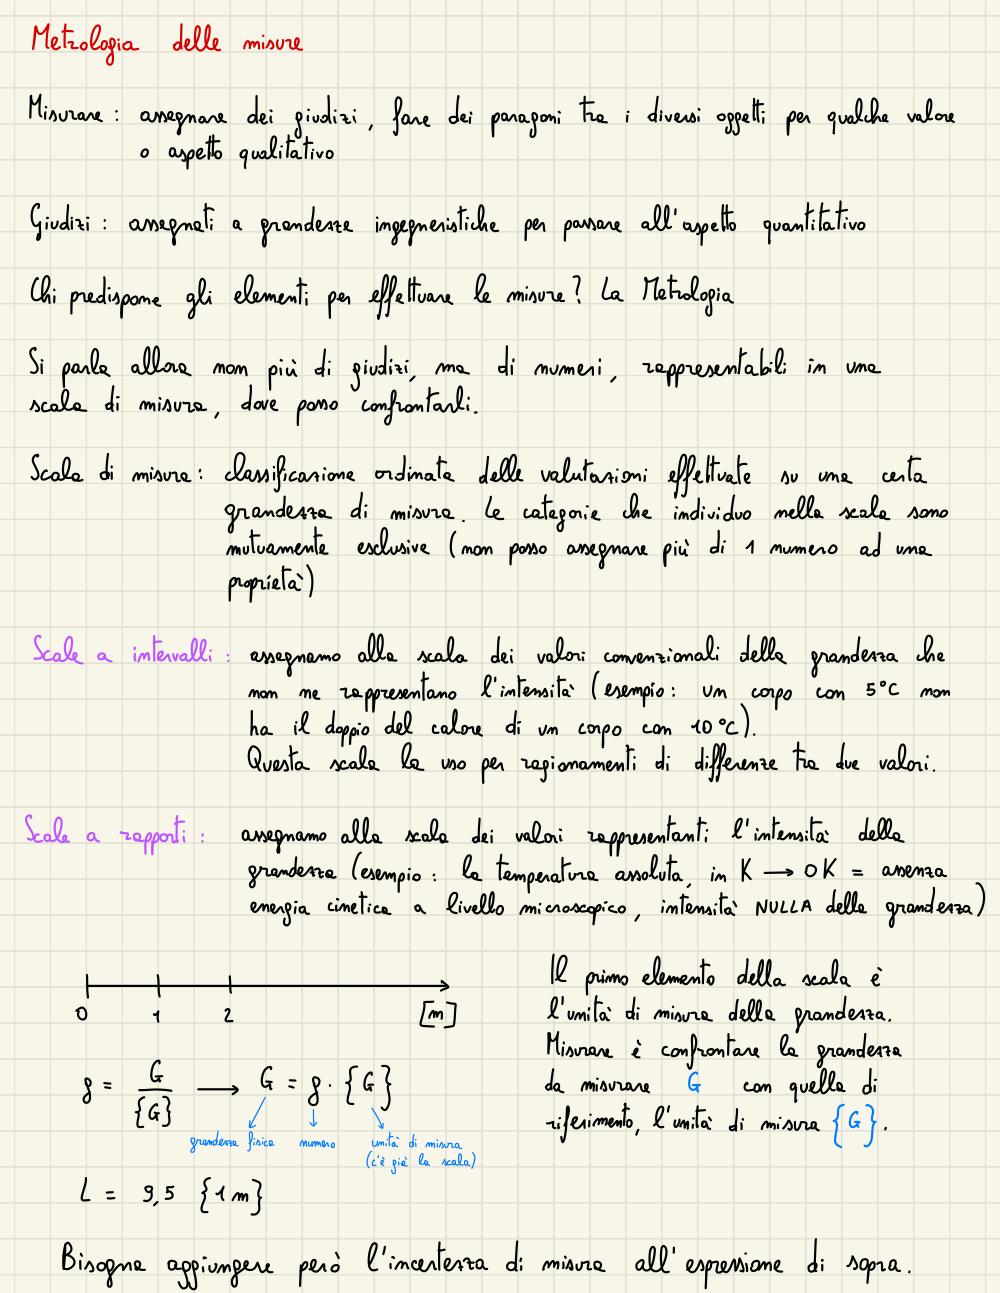 Metrologia delle misure
Misurare : assegnare dei giudizi, fare dei paragoni tra i diversi oggetti per qualche valore
o aspetto qualitativo
Giudizi : assegnati a grandezze ingegneristiche per passare all'aspetto quantitativo
Chi predispone gli elementi per effettuare le misure? La Metrologia
Si parla allora non più di giudizi, ma di numeri, rappresentabili in una
scala di misura, dove posso confrontarli.
Scala di misura : classificazione ordinata delle valutazioni effettuate su una certa
grandezza di misura. Le categorie che individuo nella scala sono
mutuamente esclusive (non posso assegnare più di 1 numero ad una
proprietà)
Scale a intervalli : assegnamo alla scala dei valori convenzionali della grandezza che
non ne rappresentano l'intensità (esempio : un corpo con 5°C non
ha il doppio del calore di un corpo con 10°C).
Questa scala la uso per ragionamenti di differenze tra due valori.
Scale a rapporti : assegnamo alla scala dei valori rappresentanti l'intensità della
grandezza (esempio : la temperatura assoluta, in K → 0 K = assenza
energia cinetica a livello microscopico, intensità NULLA della grandezza)
0 1 2 [m]
Il primo elemento della scala è
l'unità di misura della grandezza.
Misurare è confrontare la grandezza
da misurare G con quella di
riferimento, l'unità di misura {G}.
g = G / {G} → G = g · {G}
grandezza fisica numero unità di misura
(c'è già la scala)
L = 9,5 {1 m}
Bisogna aggiungere però l'incertezza di misura all'espressione di sopra.